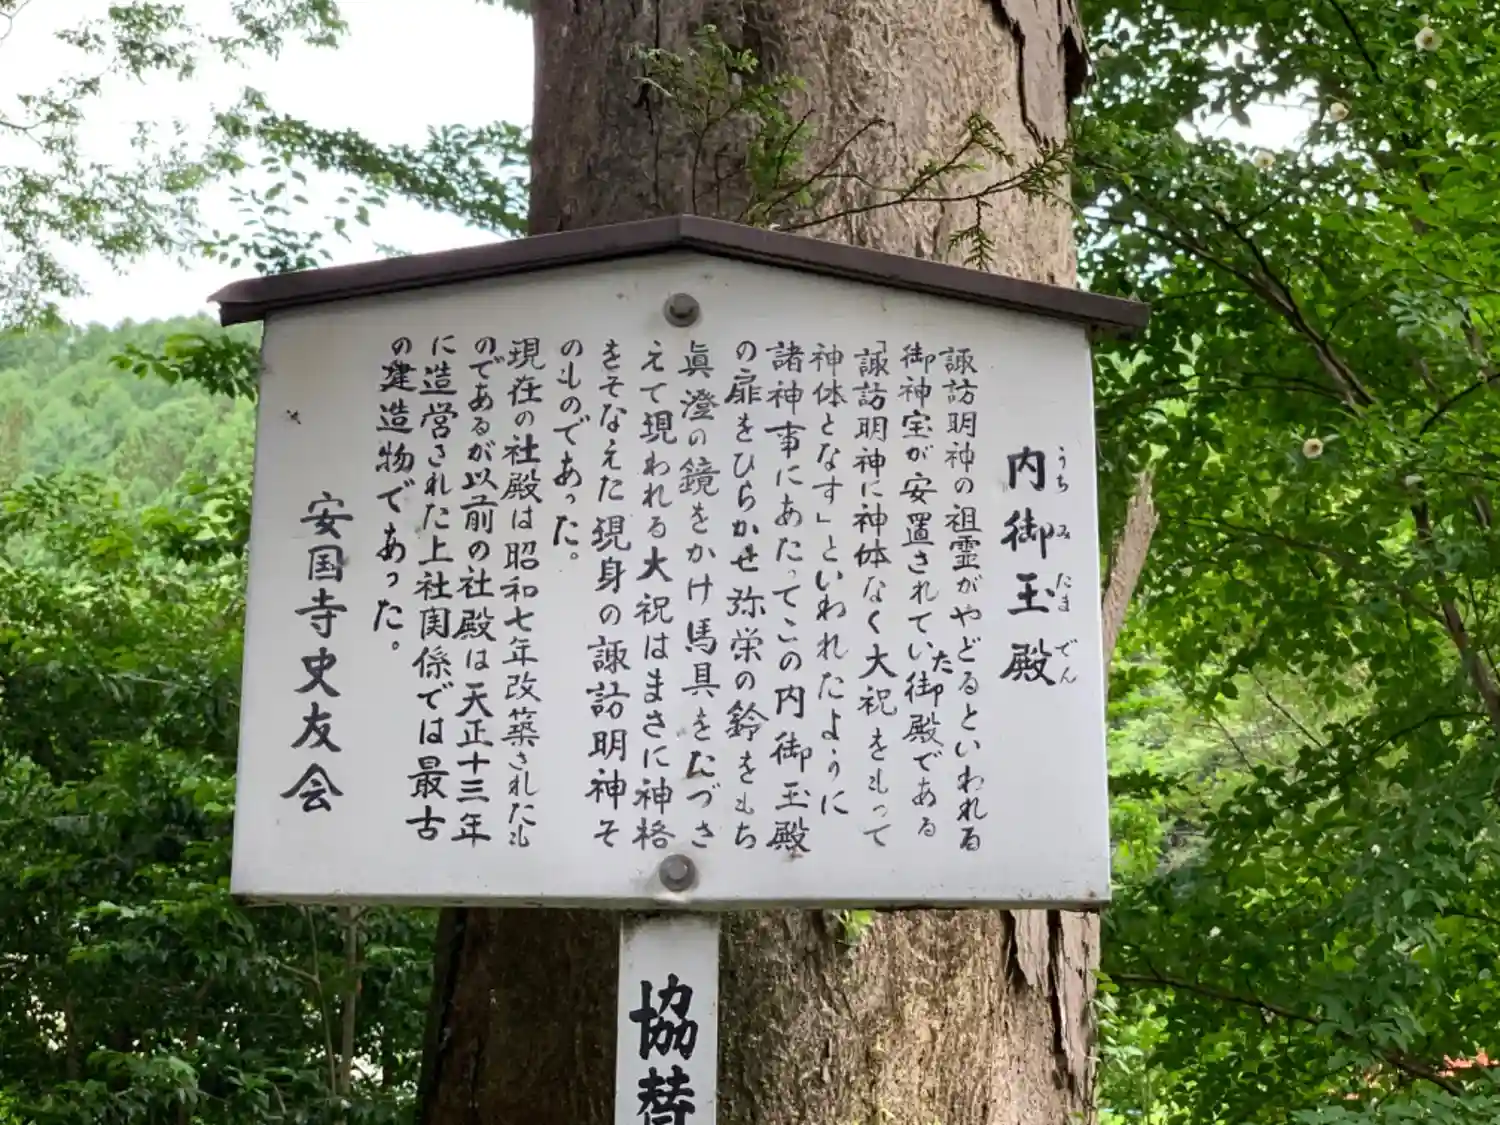 内御玉殿
うちみたまでん
諏訪明神の祖霊がやどるといわれる
御神宝が安置されていた御殿である
「諏訪明神に神体なく大祝をもって
神体となす」といわれたように
諸神事にあたってこの内御玉殿
の扉をひらかせ弥栄の鈴をもち
眞澄の鏡をかけ馬具をたづさ
えて現われる大祝はまさに神格
をそなえた現身の諏訪明神そ
のものであった。
現在の社殿は昭和七年改築されたも
のであるが以前の社殿は天正十三年
に造営された上社関係では最古
の建造物であった。
安国寺史友会
協賛